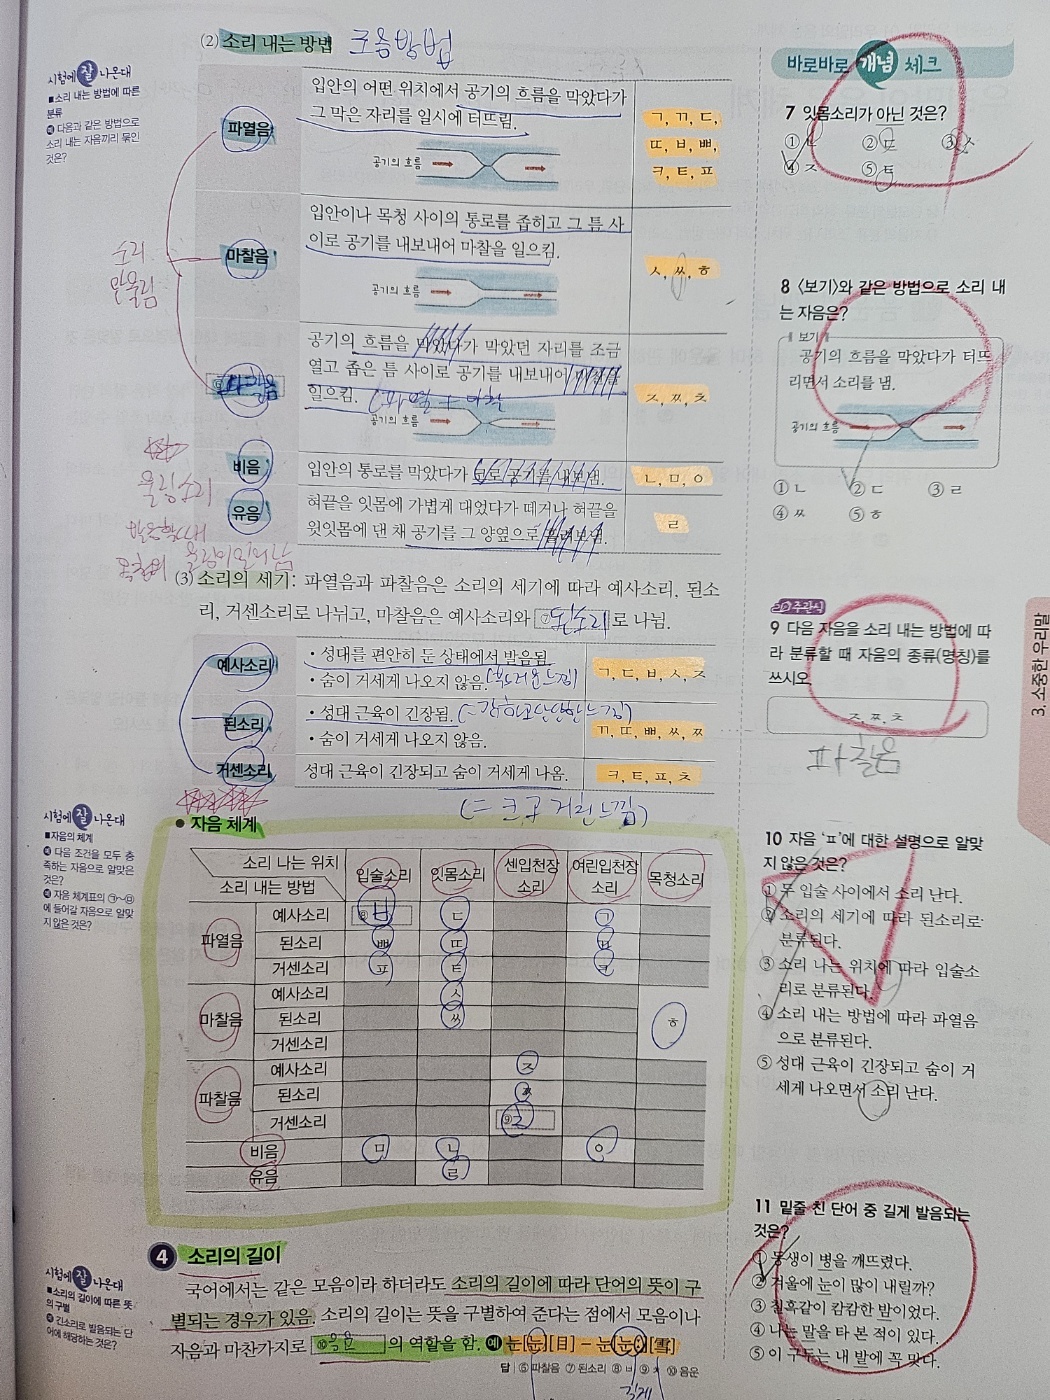 (2) 소리 내는 방법 조음방법
시험에 잘 나온대
■소리 내는 방법에 따른
분류
예 다음과 같은 방법으로
소리 내는 자음끼리 묶인
것은?
파열음
입안의 어떤 위치에서 공기의 흐름을 막았다가
그 막은 자리를 일시에 터뜨림.
공기의 흐름
ㄱ, ㄲ, ㄷ,
ㄸ, ㅂ, ㅃ,
ㅋ, ㅌ, ㅍ
마찰음
입안이나 목청 사이의 통로를 좁히고 그 틈 사
이로 공기를 내보내어 마찰을 일으킴.
공기의 흐름
ㅅ, ㅆ, ㅎ
소리
안울림
파찰음
공기의 흐름을 막았다가 막았던 자리를 조금
열고 좁은 틈 사이로 공기를 내보내어 마찰을
일으킴. (파열 + 마찰
공기의 흐름
ㅈ, ㅉ, ㅊ
비음
입안의 통로를 막았다가 코로 공기를 내보냄.
ㄴ, ㅁ, ㅇ
울림소리
유음
혀끝을 잇몸에 가볍게 대었다가 떼거나 혀끝을
윗잇몸에 댄 채 공기를 그 양옆으로 흘려보냄.
ㄹ
발음할 때
목청의 울림이 일어남
(3) 소리의 세기: 파열음과 파찰음은 소리의 세기에 따라 예사소리, 된소
리, 거센소리로 나뉘고, 마찰음은 예사소리와 ⑦된소리로 나뉨.
예사소리
• 성대를 편안히 둔 상태에서 발음됨.
• 숨이 거세게 나오지 않음. (부드러운 느낌)
ㄱ, ㄷ, ㅂ, ㅅ, ㅈ
된소리
• 성대 근육이 긴장됨. (강하고 단단한 느낌)
• 숨이 거세게 나오지 않음.
ㄲ, ㄸ, ㅃ, ㅆ, ㅉ
거센소리
성대 근육이 긴장되고 숨이 거세게 나옴.
ㅋ, ㅌ, ㅍ, ㅊ
(= 크고 거친 느낌)
시험에 잘 나온대
■자음의 체계
예 다음 조건을 모두 충
족하는 자음으로 알맞은
것은?
예 자음 체계표의 ㉠~㉤
에 들어갈 자음으로 알맞
지 않은 것은?
• 자음 체계
소리 나는 위치
소리 내는 방법
입술소리 잇몸소리 센입천장소리 여린입천장소리 목청소리
파열음 예사소리 ⑧ㅂ ㄷ ㄱ
된소리 ㅃ ㄸ ㄲ
거센소리 ㅍ ㅌ ㅋ
마찰음 예사소리 ㅅ
된소리 ㅆ ㅎ
거센소리
파찰음 예사소리 ㅈ
된소리 ㅉ
거센소리 ⑨ㅊ
비음 ㅁ ㄴ ㅇ
유음 ㄹ
4 소리의 길이
시험에 잘 나온대
■소리의 길이에 따른 뜻
의 구별
예 긴소리로 발음되는 단
어에 해당하는 것은?
국어에서는 같은 모음이라 하더라도 소리의 길이에 따라 단어의 뜻이 구
별되는 경우가 있음. 소리의 길이는 뜻을 구별하여 준다는 점에서 모음이나
자음과 마찬가지로 ⑩음운의 역할을 함. 예 눈[눈][目] – 눈[눈:][雪]
답 | ⑥ 파찰음 ⑦ 된소리 ⑧ ㅂ ⑨ ㅊ ⑩ 음운
길게
바로바로 개념 체크
7 잇몸소리가 아닌 것은?
① ㄴ ② ㄸ ③ ㅅ
④ ㅈ ⑤ ㅌ
8 〈보기〉와 같은 방법으로 소리 내
는 자음은?
보기
공기의 흐름을 막았다가 터뜨
리면서 소리를 냄.
공기의 흐름
① ㄴ ② ㄷ ③ ㄹ
④ ㅆ ⑤ ㅎ
주관식
9 다음 자음을 소리 내는 방법에 따
라 분류할 때 자음의 종류(명칭)를
쓰시오.
ㅈ, ㅉ, ㅊ
파찰음
10 자음 ‘ㅍ’에 대한 설명으로 알맞
지 않은 것은?
① 두 입술 사이에서 소리 난다.
② 소리의 세기에 따라 된소리로
분류된다.
③ 소리 나는 위치에 따라 입술소
리로 분류된다.
④ 소리 내는 방법에 따라 파열음
으로 분류된다.
⑤ 성대 근육이 긴장되고 숨이 거
세게 나오면서 소리 난다.
11 밑줄 친 단어 중 길게 발음되는
것은?
① 동생이 병을 깨뜨렸다.
② 겨울에 눈이 많이 내릴까?
③ 칠흑같이 캄캄한 밤이었다.
④ 나는 말을 타 본 적이 있다.
⑤ 이 구두는 내 발에 꼭 맞다.
3. 소중한 우리말